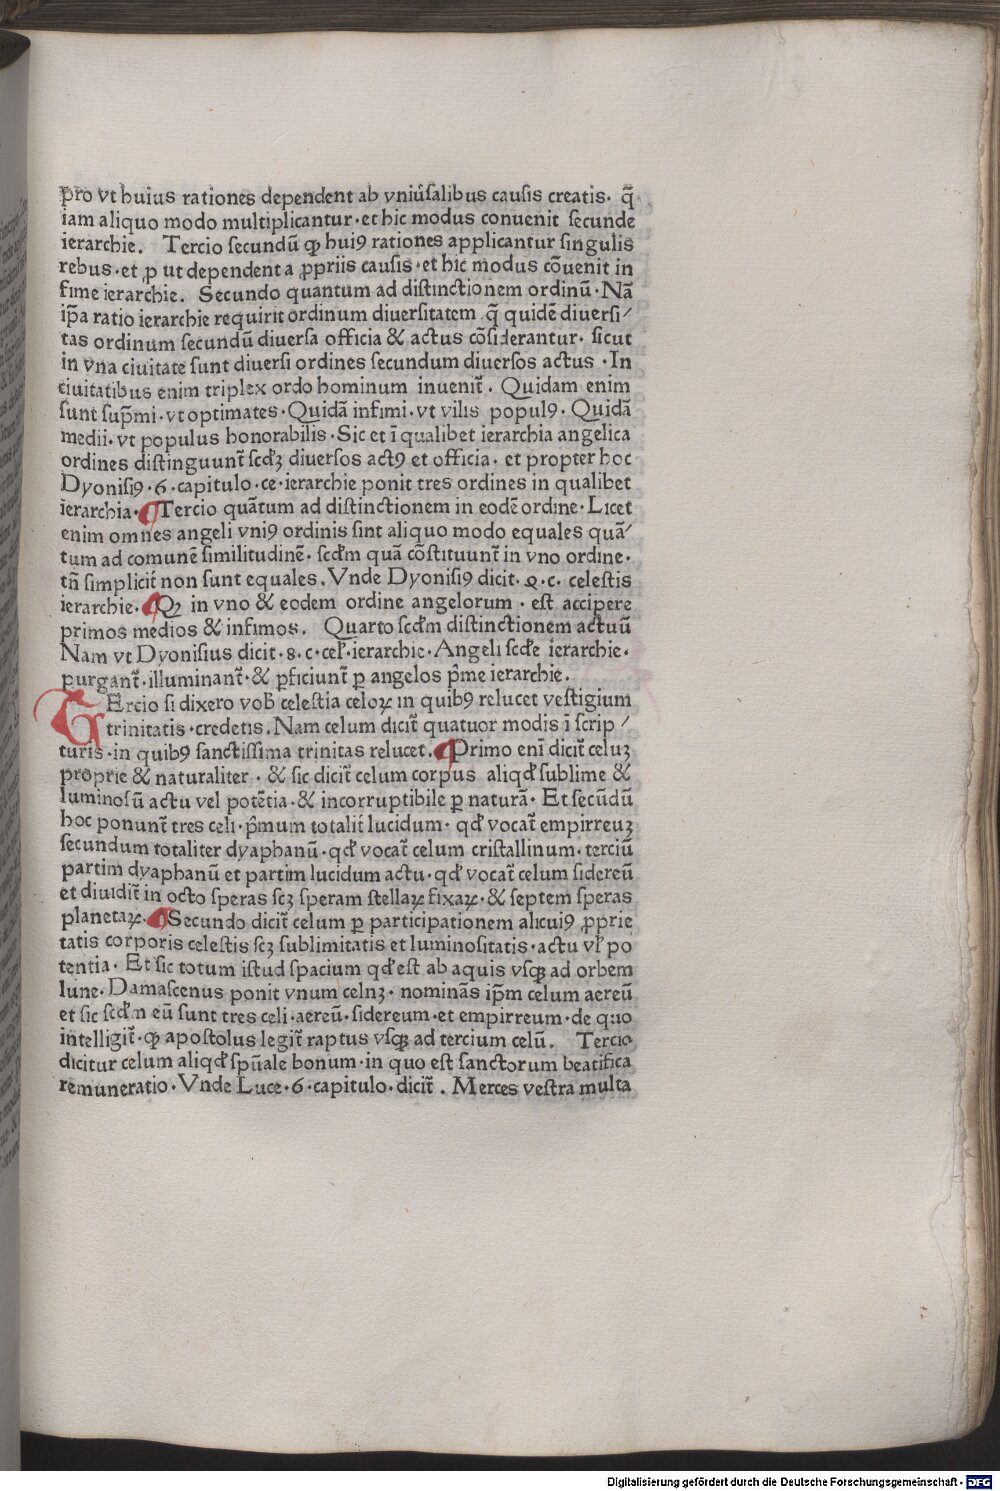 pro vt huius rationes dependent ab vniũsalibus causis creatis· q̃
iam aliquo modo multiplicantur·et hic modus conuenit secunde
ierarchie. Tercio secundũ ꝙ huiꝰ rationes applicantur singulis
rebus·et ꝓ ut dependent a ꝓpriis causis·et hic modus cõuenit in
fime ierarchie. Secundo quantum ad distinctionem ordinũ·Nã
ip̃a ratio ierarchie requirit ordinum diuersitatem q̃ quidẽ diuersi⸗
tas ordinum secundũ diuersa officia & actus cõsiderantur· sicut
in vna ciuitate sunt diuersi ordines secundum diuersos actus ·In
ciuitatibus enim triplex ordo hominum inuenit̃. Quidam enim
sunt sup̃mi·vt optimates·Quidã infimi·vt vilis populꝰ·Quidã
medii·vt populus honorabilis·Sic et ĩ qualibet ierarchia angelica
ordines distinguunt̃ scd̃ʒ diuersos actꝰ et officia· et propter hoc
Dyonisiꝰ·6·capitulo·ce·ierarchie ponit tres ordines in qualibet
ierarchia· Tercio quãtum ad distinctionem in eodẽ ordine·Licet
enim omnes angeli vniꝰ ordinis sint aliquo modo equales quã⸗
tum ad comunẽ similitudinẽ· scd̃m quã cõstituunt̃ in vno ordine·
tñ simplicit̃ non sunt equales. Vnde Dyonisiꝰ dicit·ꝯ·c· celestis
ierarchie· Qꝫ in vno & eodem ordine angelorum · est accipere
primos medios & infimos. Quarto scd̃m distinctionem actuũ
Nam vt Dyonisius dicit·8·c·cel̃·ierarchie·Angeli scd̃e ierarchie·
purgant̃·illuminant̃·& ꝑficiunt̃ ꝑ angelos p̃me ierarchie.
TErcio si dixero vob̃ celestia celoꝝ in quibꝰ relucet vestigium
trinitatis·credetis. Nam celum dicit̃ quatuor modis ĩ scrip⸗
turis·in quibꝰ sanctissima trinitas relucet. Primo enĩ dicit̃ celuʒ
proprie & naturaliter · & sic dicit̃ celum corpus aliqd̃ sublime &
luminosũ actu vel potẽtia·& incorruptibile ꝑ naturã· Et secũdũ
hoc ponunt̃ tres celi·p̃mum totalit̃ lucidum· qd̃ vocat̃ empirreuʒ
secundum totaliter dyaphanũ·qd̃ vocat̃ celum cristallinum·terciũ
partim dyaphanũ et partim lucidum actu·qd̃ vocat̃ celum sidereũ
et diuidit̃ in octo speras scʒ speram stellaꝝ fixaꝝ·& septem speras
planetaꝝ· Secundo dicit̃ celum ꝑ participationem alicuiꝰ ꝓprie
tatis corporis celestis scʒ sublimitatis et luminositatis·actu vl̃ po
tentia· Et sic totum istud spacium qd̃ est ab aquis vsqꝫ ad orbem
lune·Damascenus ponit vnum celnʒ· nominãs ip̃m celum aereũ
et sic scd̃m eũ sunt tres celi·aereũ·sidereum·et empirreum·de quo
intelligit̃·ꝙ apostolus legit̃ raptus vsqꝫ ad tercium celũ. Tercio
dicitur celum aliqd̃ sp̃uale bonum·in quo est sanctorum beatifica
remuneratio·Vnde Luce·6·capitulo·dicit̃. Merces vestra multa
Digitalisierung gefördert durch die Deutsche Forschungsgemeinschaft - DFG